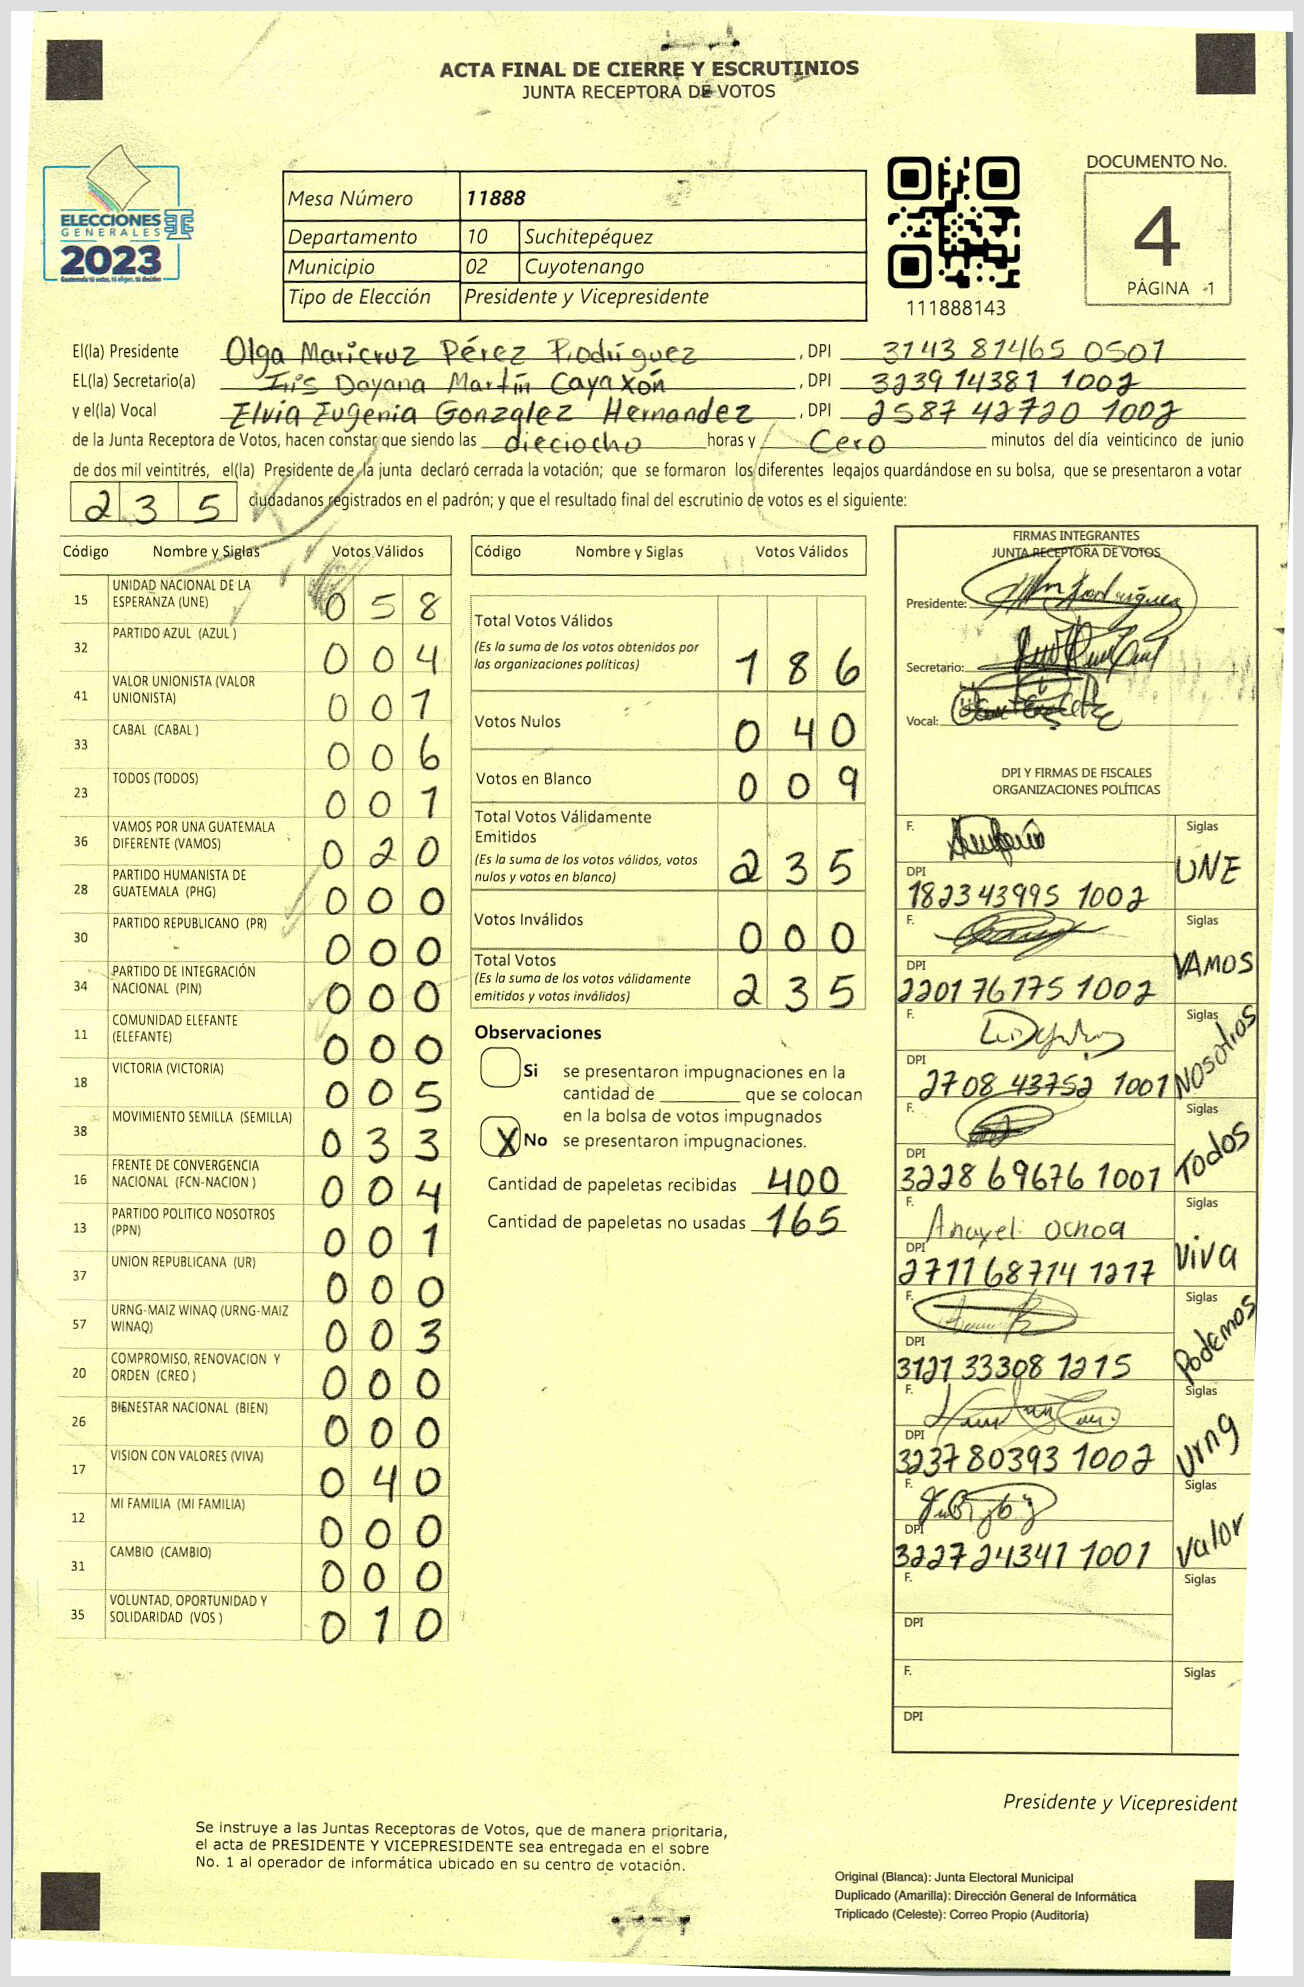 ACTA FINAL DE CIERRE Y ESCRUTINIOS
JUNTA RECEPTORA DE VOTOS
ELECCIONES
GENERALES
2023
Guatemala tú votas, tú eliges, tú decides
Mesa Número 11888
Departamento 10 Suchitepéquez
Municipio 02 Cuyotenango
Tipo de Elección Presidente y Vicepresidente
111888143
DOCUMENTO No.
4
PÁGINA -1
El(la) Presidente Olga Maricruz Pérez Rodríguez, DPI 3143 81465 0501
EL(la) Secretario(a) Iris Dayana Martín Cayaxón, DPI 3239 14381 1002
y el(la) Vocal Elvia Eugenia González Hernandez, DPI 2587 42720 1002
de la Junta Receptora de Votos, hacen constar que siendo las dieciocho horas y Cero minutos del día veinticinco de junio
de dos mil veintitrés, el(la) Presidente de la junta declaró cerrada la votación; que se formaron los diferentes legajos quardándose en su bolsa, que se presentaron a votar
2 3 5 ciudadanos registrados en el padrón; y que el resultado final del escrutinio de votos es el siguiente:
Código Nombre y Siglas Votos Válidos
15 UNIDAD NACIONAL DE LA ESPERANZA (UNE) 0 5 8
32 PARTIDO AZUL (AZUL ) 0 0 4
41 VALOR UNIONISTA (VALOR UNIONISTA) 0 0 1
33 CABAL (CABAL ) 0 0 6
23 TODOS (TODOS) 0 0 1
36 VAMOS POR UNA GUATEMALA DIFERENTE (VAMOS) 0 2 0
28 PARTIDO HUMANISTA DE GUATEMALA (PHG) 0 0 0
30 PARTIDO REPUBLICANO (PR) 0 0 0
34 PARTIDO DE INTEGRACIÓN NACIONAL (PIN) 0 0 0
11 COMUNIDAD ELEFANTE (ELEFANTE) 0 0 0
18 VICTORIA (VICTORIA) 0 0 5
38 MOVIMIENTO SEMILLA (SEMILLA) 0 3 3
16 FRENTE DE CONVERGENCIA NACIONAL (FCN-NACION ) 0 0 4
13 PARTIDO POLITICO NOSOTROS (PPN) 0 0 1
37 UNION REPUBLICANA (UR) 0 0 0
57 URNG-MAIZ WINAQ (URNG-MAIZ WINAQ) 0 0 3
20 COMPROMISO, RENOVACION Y ORDEN (CREO ) 0 0 0
26 BIENESTAR NACIONAL (BIEN) 0 0 0
17 VISION CON VALORES (VIVA) 0 4 0
12 MI FAMILIA (MI FAMILIA) 0 0 0
31 CAMBIO (CAMBIO) 0 0 0
35 VOLUNTAD, OPORTUNIDAD Y SOLIDARIDAD (VOS ) 0 1 0
Código Nombre y Siglas Votos Válidos
Total Votos Válidos
(Es la suma de los votos obtenidos por
las organizaciones políticas) 1 8 6
Votos Nulos 0 4 0
Votos en Blanco 0 0 9
Total Votos Válidamente
Emitidos
(Es la suma de los votos válidos, votos
nulos y votos en blanco) 2 3 5
Votos Inválidos 0 0 0
Total Votos
(Es la suma de los votos válidamente
emitidos y votos inválidos) 2 3 5
Observaciones
Si se presentaron impugnaciones en la
cantidad de ________ que se colocan
en la bolsa de votos impugnados
X No se presentaron impugnaciones.
Cantidad de papeletas recibidas 400
Cantidad de papeletas no usadas 165
FIRMAS INTEGRANTES
JUNTA RECEPTORA DE VOTOS
Presidente:
Secretario:
Vocal:
DPI Y FIRMAS DE FISCALES
ORGANIZACIONES POLÍTICAS
F. Siglas
DPI UNE
1823 43995 1002
F. Siglas
DPI VAMOS
2201 76175 1002
F. Siglas
DPI Nosotros
2708 43752 1001
F. Siglas
DPI Todos
3228 69676 1001
F. Anayeli Ochoa Siglas
DPI Viva
2711 68714 1217
F. Siglas
DPI Podemos
3121 33308 1215
F. Siglas
DPI Urng
3237 80393 1002
F. Siglas
DPI Valor
3227 24341 1001
F. Siglas
DPI
F. Siglas
DPI
Presidente y Vicepresident
Se instruye a las Juntas Receptoras de Votos, que de manera prioritaria,
el acta de PRESIDENTE Y VICEPRESIDENTE sea entregada en el sobre
No. 1 al operador de informática ubicado en su centro de votación.
Original (Blanca): Junta Electoral Municipal
Duplicado (Amarilla): Dirección General de Informática
Triplicado (Celeste): Correo Propio (Auditoría)